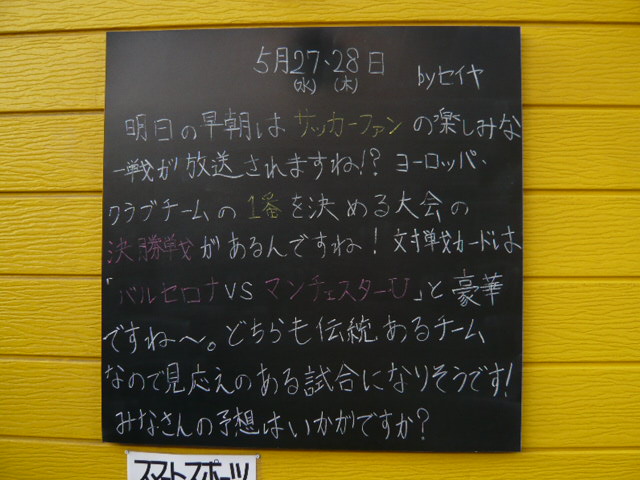 5月27、28日 byセイヤ
(水) (木)
明日の早朝はサッカーファンの楽しみな
一戦が放送されますね!? ヨーロッパ・
クラブチームの1番を決める大会の
決勝戦があるんですね! 対戦カードは
「バルセロナVSマンチェスターU」と豪華
ですね〜。どちらも伝統あるチーム
なので見応えのある試合になりそうです!
みなさんの予想はいかがですか?
スマートスポーツ